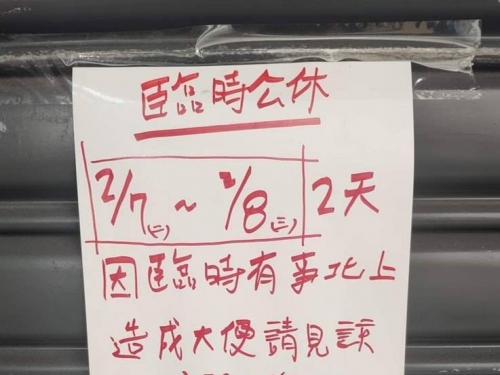 臨時公休
2/7(二)~2/8(三) 2天
因臨時有事北上
造成大便請見諒